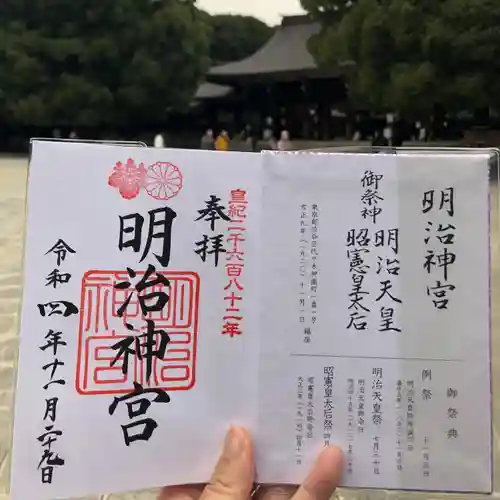 明治神宮
御祭神
明治天皇
昭憲皇太后
御祭典
例祭
明治天皇祭 七月三十日
昭憲皇太后祭
皇紀二千六百八十二年
奉拝
明治神宮
令和四年十一月二十九日